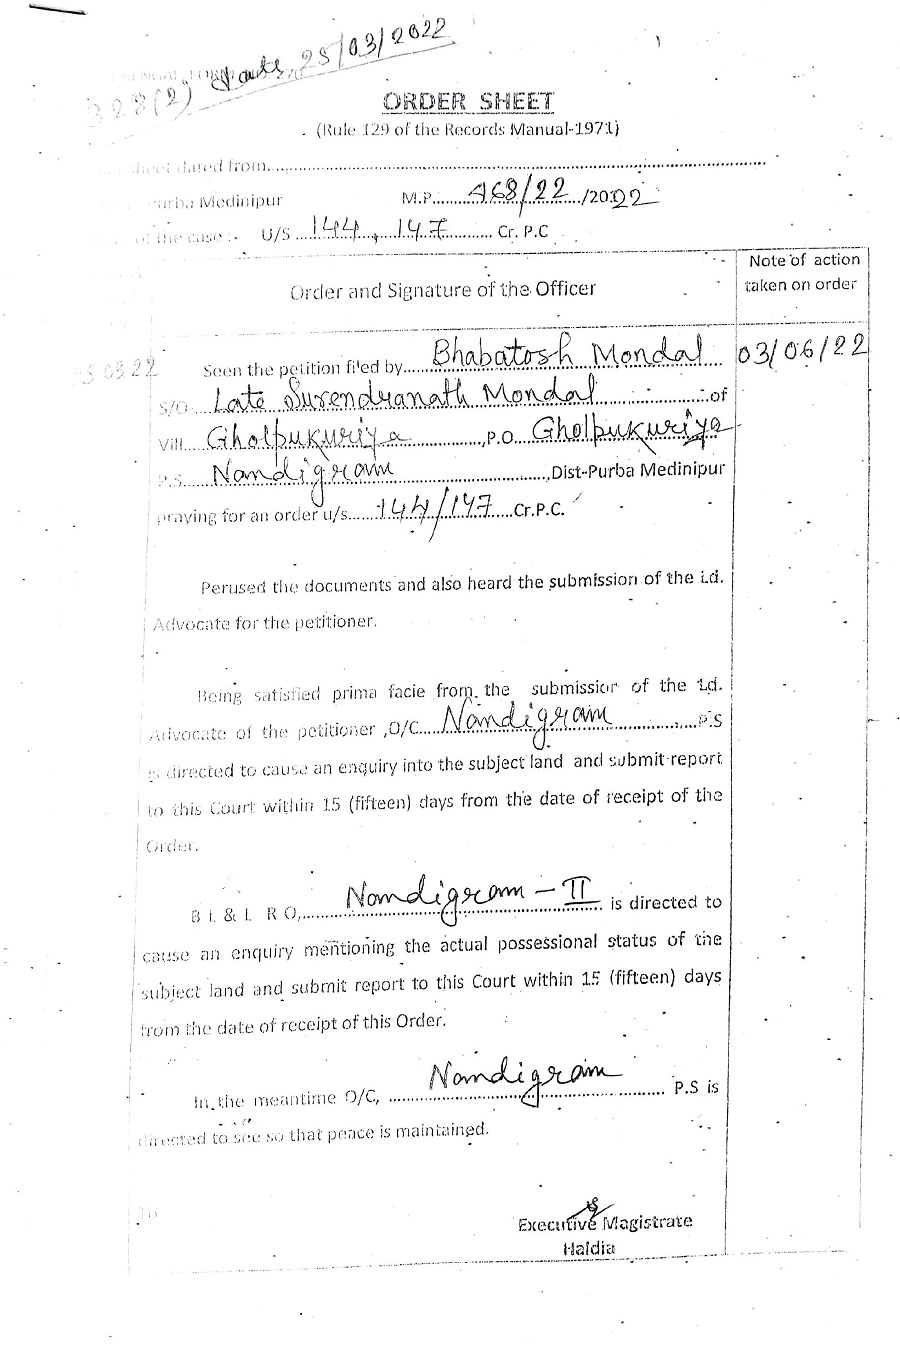 328(2) Date 25/03/2022
ORDER SHEET
(Rule 129 of the Records Manual-1971)
sheet dated from
Purba Medinipur M.P. 468/22 /2022
of the case :- U/S 144, 147 Cr. P.C
Order and Signature of the Officer
Note of action
taken on order
25.03.22 Seen the petition filed by Bhabatosh Mondal 03/06/22
S/O Late Surendranath Mondal of
Vill Gholpukuriya, P.O Gholpukuriya
P.S. Nandigram, Dist-Purba Medinipur
praying for an order u/s 144/147 Cr.P.C.
Perused the documents and also heard the submission of the Ld.
Advocate for the petitioner.
Being satisfied prima facie from the submission of the Ld.
Advocate of the petitioner ,O/C Nandigram P.S
is directed to cause an enquiry into the subject land and submit report
to this Court within 15 (fifteen) days from the date of receipt of the
Order.
B L & L R O, Nandigram - II is directed to
cause an enquiry mentioning the actual possessional status of the
subject land and submit report to this Court within 15 (fifteen) days
from the date of receipt of this Order.
In the meantime O/C, Nandigram P.S is
directed to see so that peace is maintained.
To
Executive Magistrate
Haldia